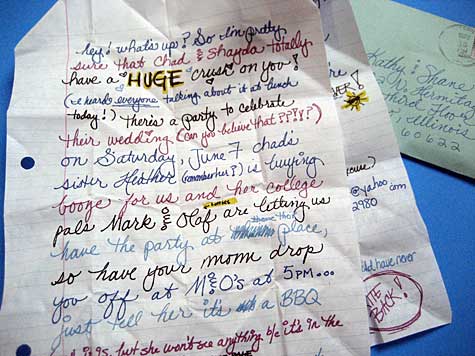 hey! what's up? So I'm pretty
sure that Chad & Shayda totally
have a HUGE crush on you!
(I heard everyone talking about it at lunch
today!) There's a party to celebrate
their wedding (can you believe that ??!!?)
on Saturday, June 7 chad's
sister Heather (remember?) is buying
booze for us and her college
pals Mark & Olaf are letting us
have the party at place,
so have your mom drop
you off at M&O's at 5PM...
just tell her it's a BBQ
but she won't see anything b/c it's in the
@yahoo.com
2980
did have never
BACK!
Kathy & Shane
Third Floor
Illinois
60622